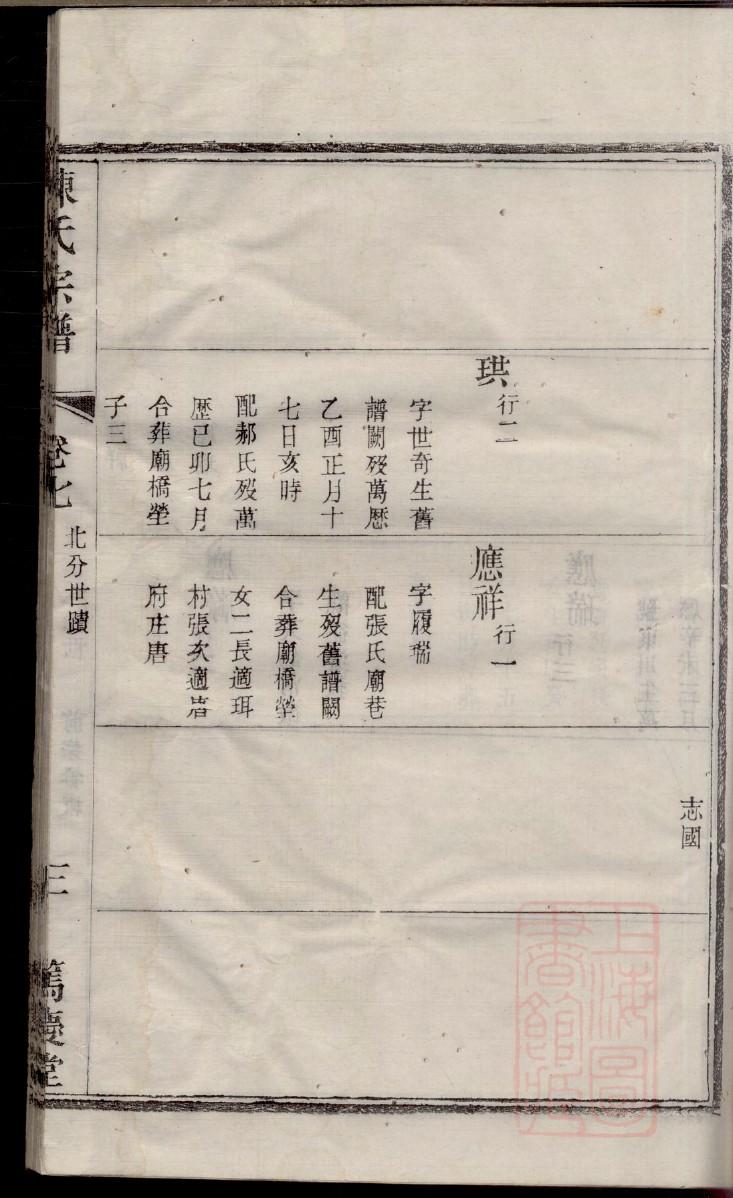 志國
珙 行二
字世奇生舊
譜闕歿萬歷
乙酉正月十
七日亥時
配郝氏歿萬
歷己卯七月
合葬廟橋塋
子三
應祥 行一
字履瑞
配張氏廟巷
生歿舊譜闕
合葬廟橋塋
女二長適珥
村張次適
府庄唐
陳氏宗譜
卷七
北分世蹟
三
篤慶堂
上海圖書館藏